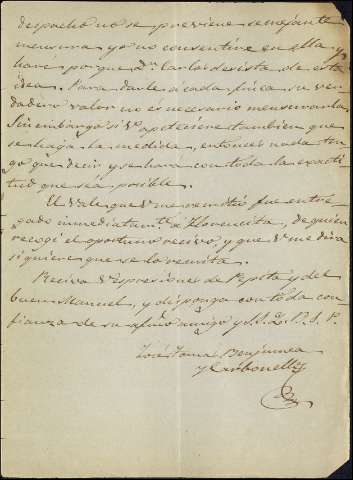 despacho no se previene semejante
mensura yo no consentiré en ella y
haré porque Dn. Carlos desista de esta
idea. Para darle á cada finca su ver
dadero valor no es necesario mensurarla.
Sin embargo si V apeteciese tambien que
se haga la medida, entonces nada ten
go que decir y se hará con toda la exacti
tud que sea posible.
El Vale que V me remitió fue entre
gado inmediatamte. á Florencita, de quien
recogí el oportuno recivo, y que V me dirá
si quiere que se lo remita.
Reciva V espresiones de Pepita y del
buen Manuel, y disponga con toda con
fianza de su afmo. amigo y S. S. Q. B. S. M.
José Toma Benjumea
y Carbonell